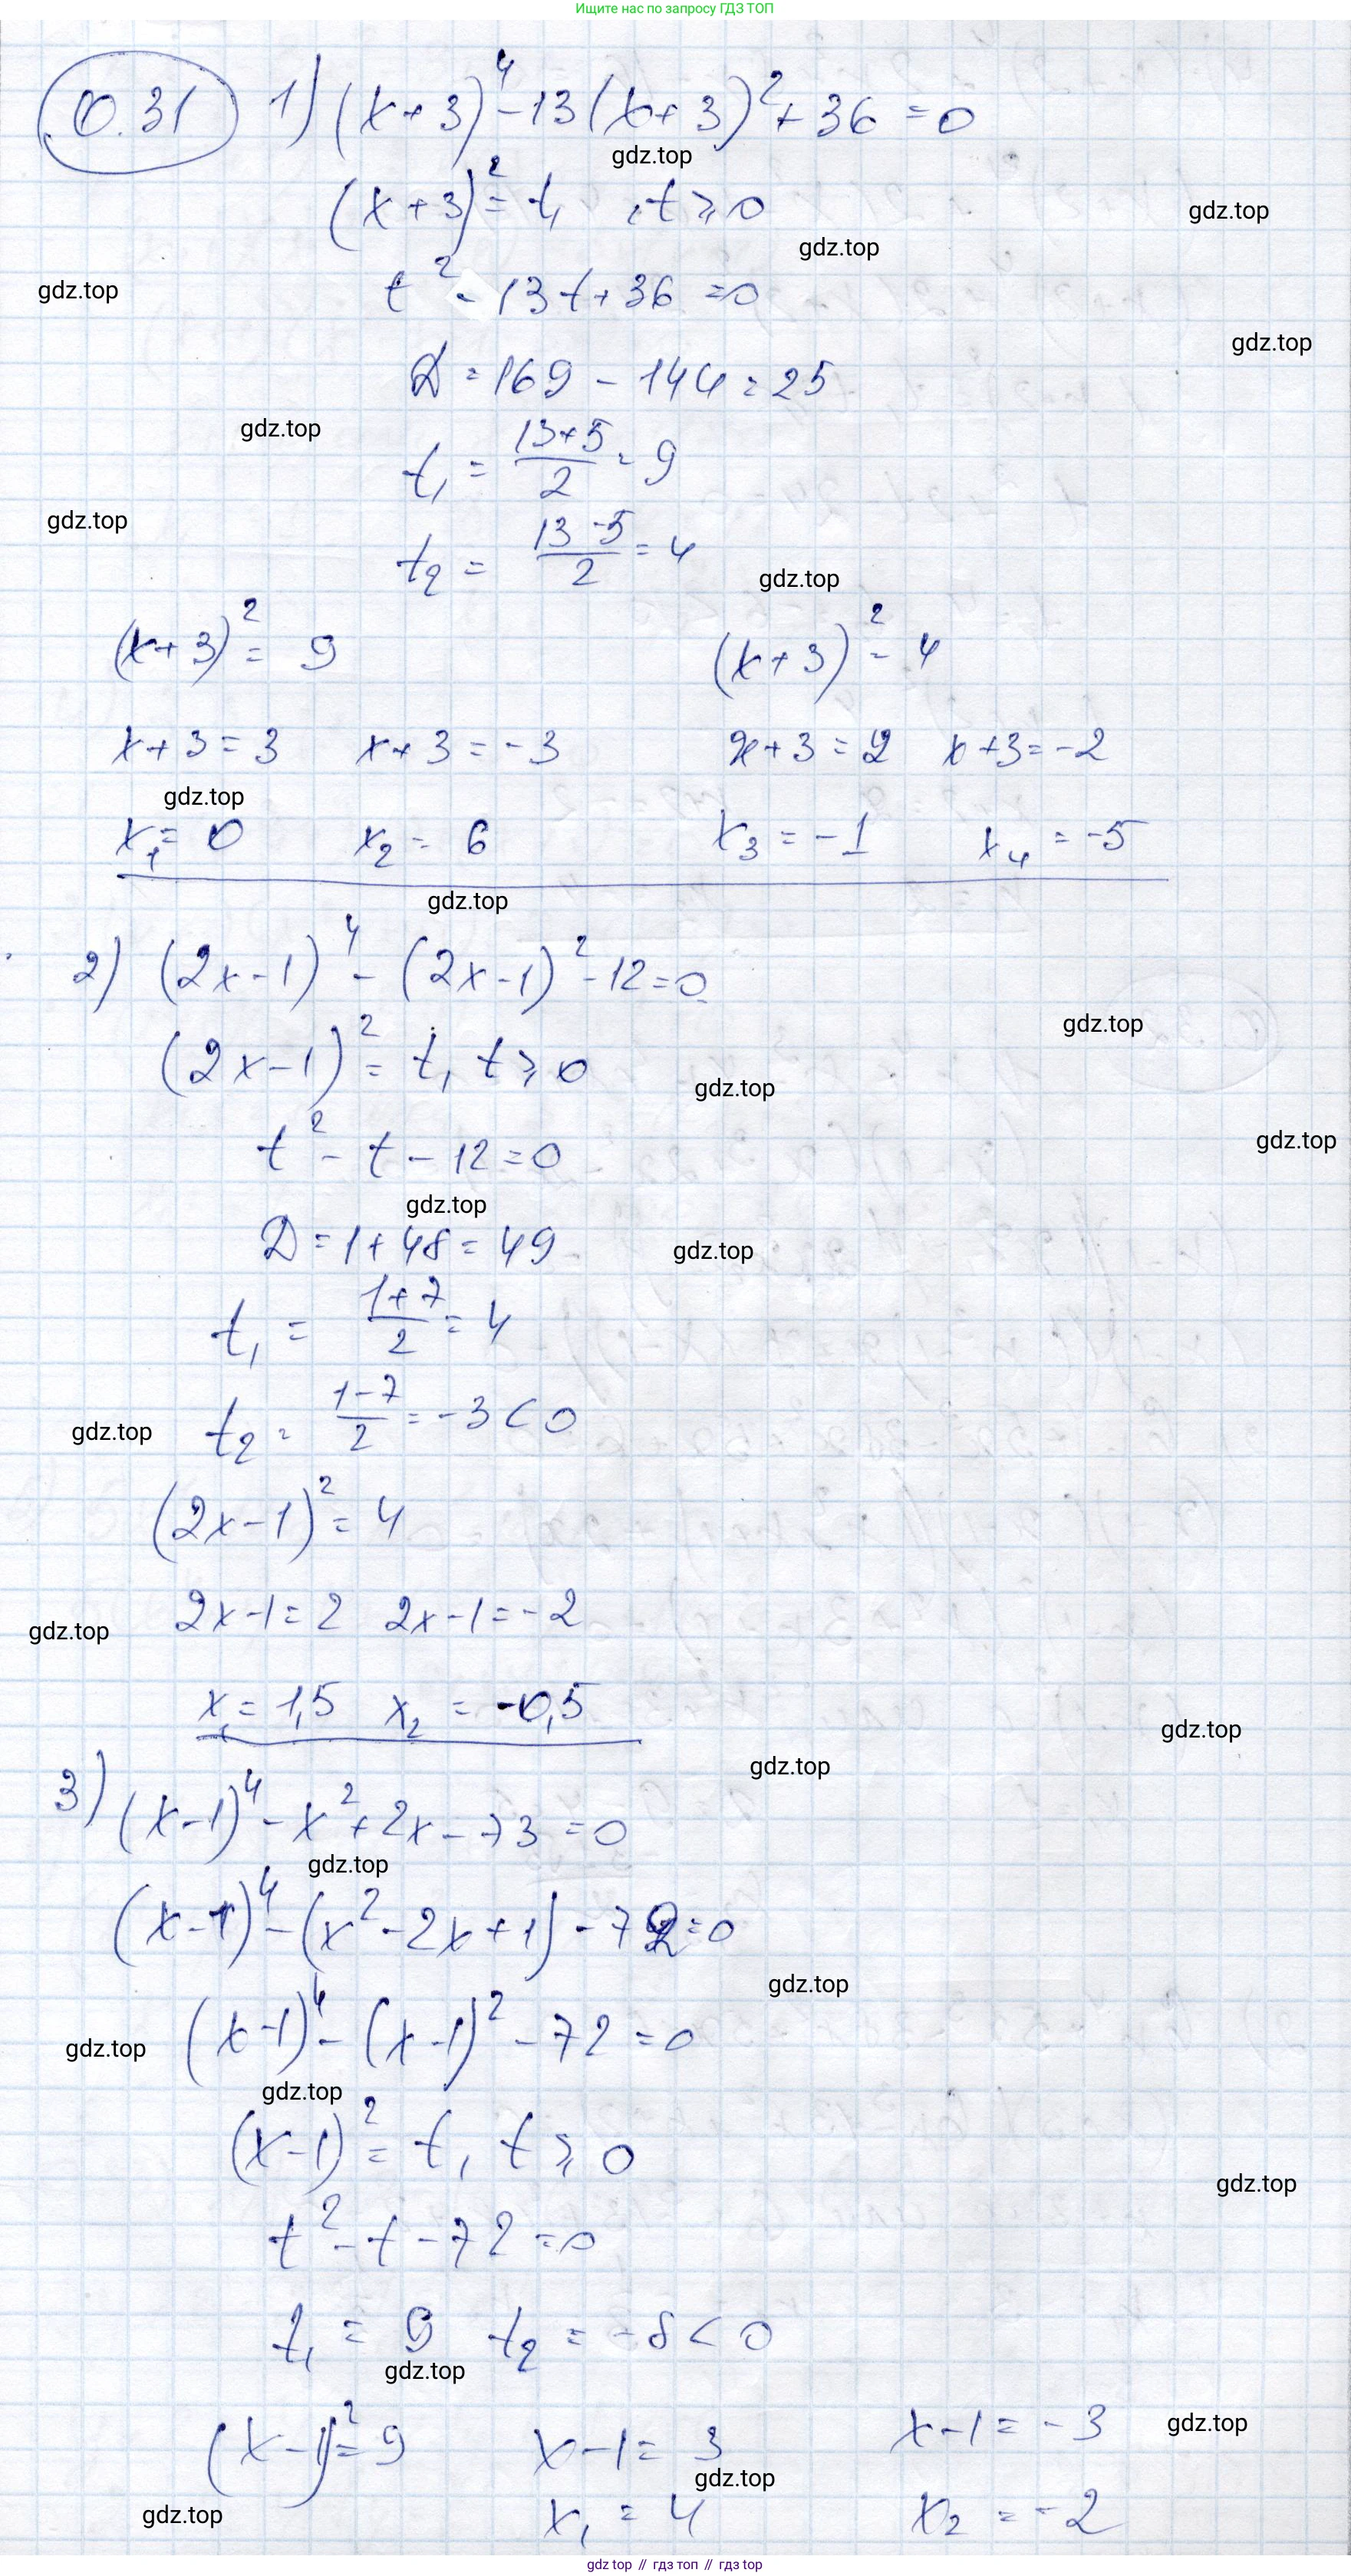 Ищите нас по запросу ГДЗ ТОП
0.31 1) (x+3)⁴-13(x+3)²+36=0
gdz.top
(x+3)²=t, t⩾0
gdz.top
gdz.top
gdz.top
t²-13t+36=0
gdz.top
D=169-144=25
gdz.top
t₁=(13+5)/2=9
gdz.top
t₂=(13-5)/2=4
gdz.top
(x+3)²=9 (x+3)²=4
x+3=3 x+3=-3 x+3=2 x+3=-2
gdz.top
x₁=0 x₂=6 x₃=-1 x₄=-5
gdz.top
2) (2x-1)⁴-(2x-1)²-12=0
gdz.top
(2x-1)²=t, t⩾0
gdz.top
gdz.top
t²-t-12=0
gdz.top
D=1+48=49
gdz.top
t₁=(1+7)/2=4
t₂=(1-7)/2=-3<0
gdz.top
(2x-1)²=4
2x-1=2 2x-1=-2
gdz.top
x₁=1,5 x₂=-0,5
gdz.top
gdz.top
3) (x-1)⁴-x²+2x-73=0
gdz.top
(x-1)⁴-(x²-2x+1)-72=0
gdz.top
(x-1)⁴-(x-1)²-72=0
gdz.top
gdz.top
(x-1)²=t, t⩾0
gdz.top
t²-t-72=0
t₁=9 t₂=-8<0
gdz.top
(x-1)²=9 x-1=3 x-1=-3
gdz.top
gdz.top
x₁=4 x₂=-2
gdz.top
gdz top // гдз топ // gdz top